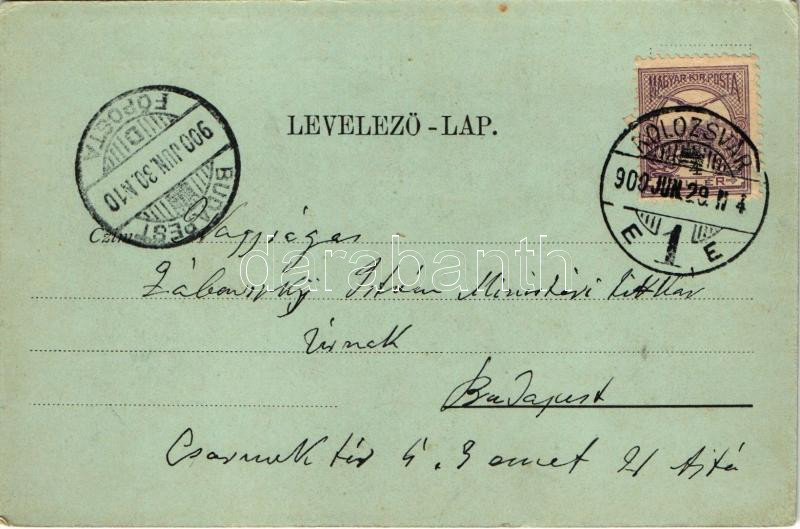 MAGYAR·KIR·POSTA
KOLOZSVÁR
900 JUN. 29. N 4
E 1 E
BUDAPEST
900 JUN. 30. A 10
D
FŐPOSTA
LEVELEZŐ-LAP.
Nagyságos
István Ministeri titkár
Úrnak
Budapest
tér 4. 3 emet 21 Ajtó
darabanth